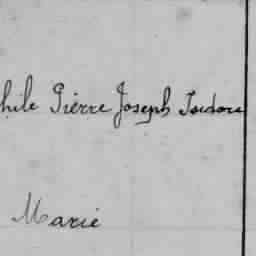 hile Pierre Joseph Isidore
Marie